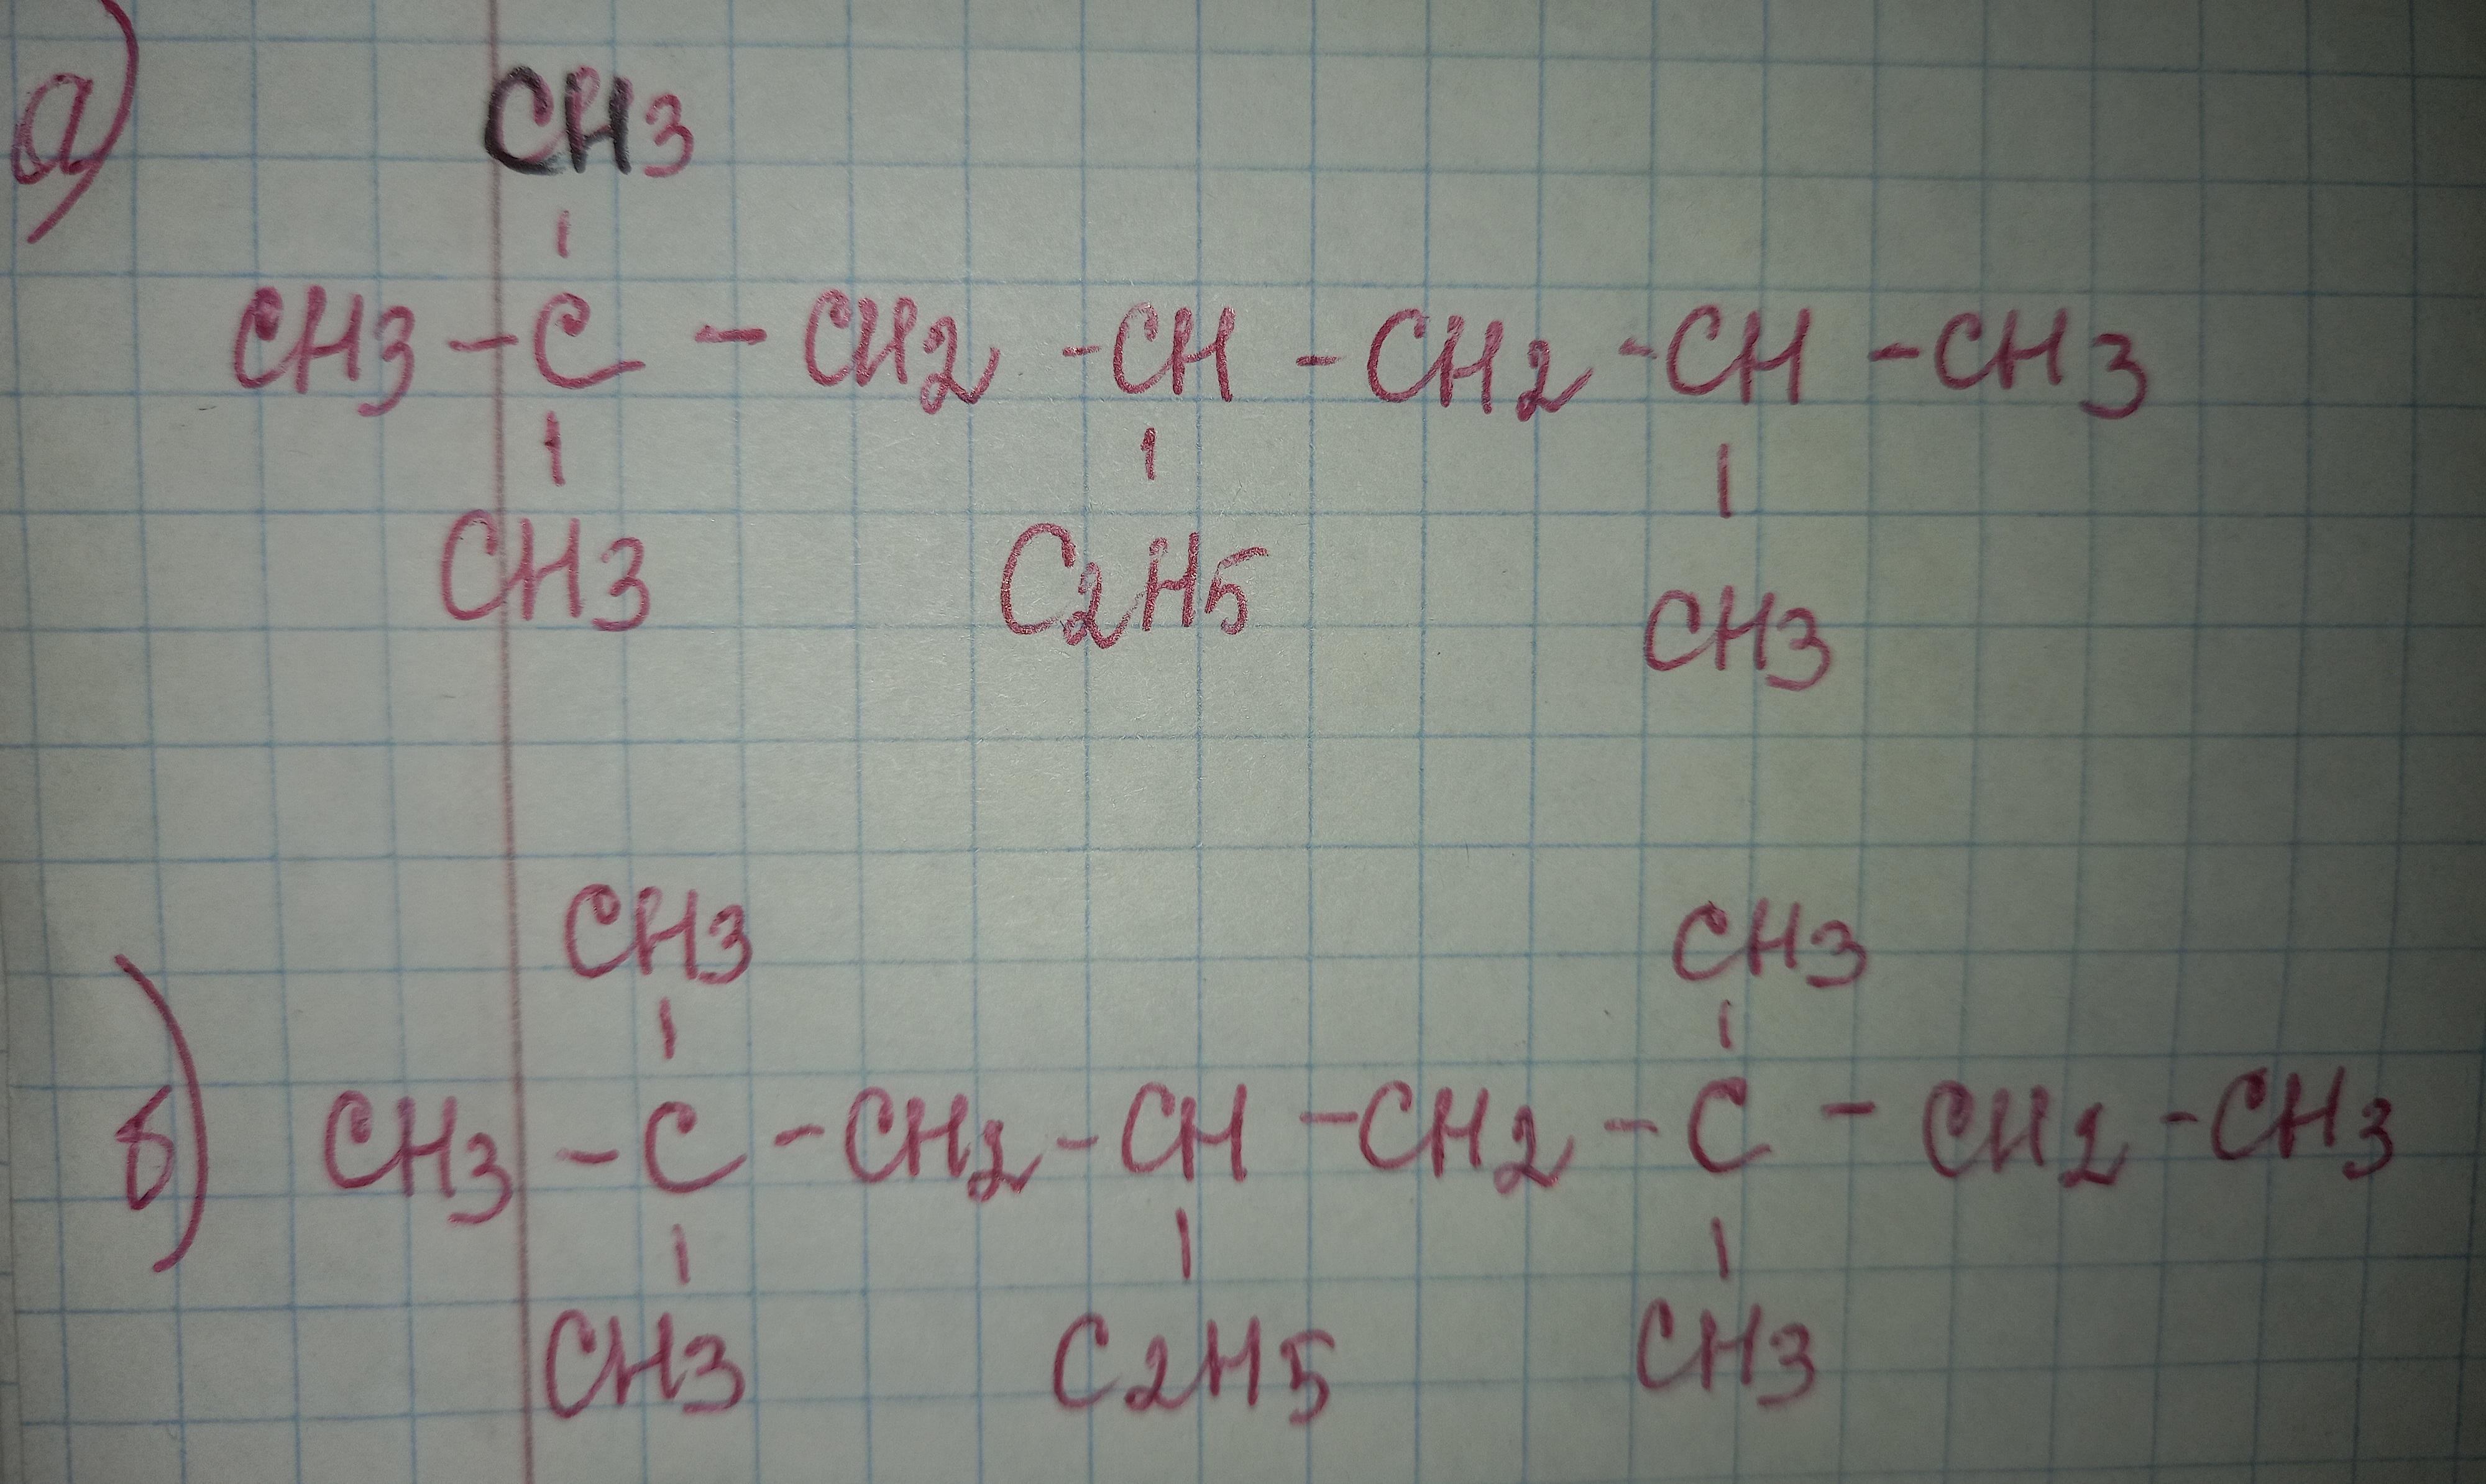 а)
CH3
CH3 - C - CH2 - CH - CH2 - CH - CH3
CH3 C2H5 CH3
б)
CH3 CH3
CH3 - C - CH2 - CH - CH2 - C - CH2 - CH3
CH3 C2H5 CH3